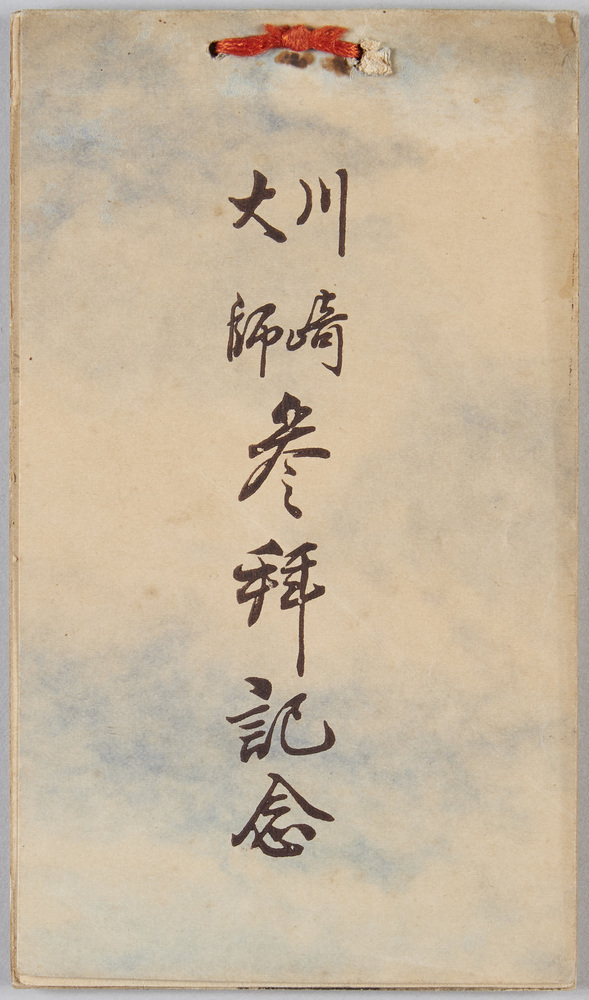 川崎
大師
参拜記念